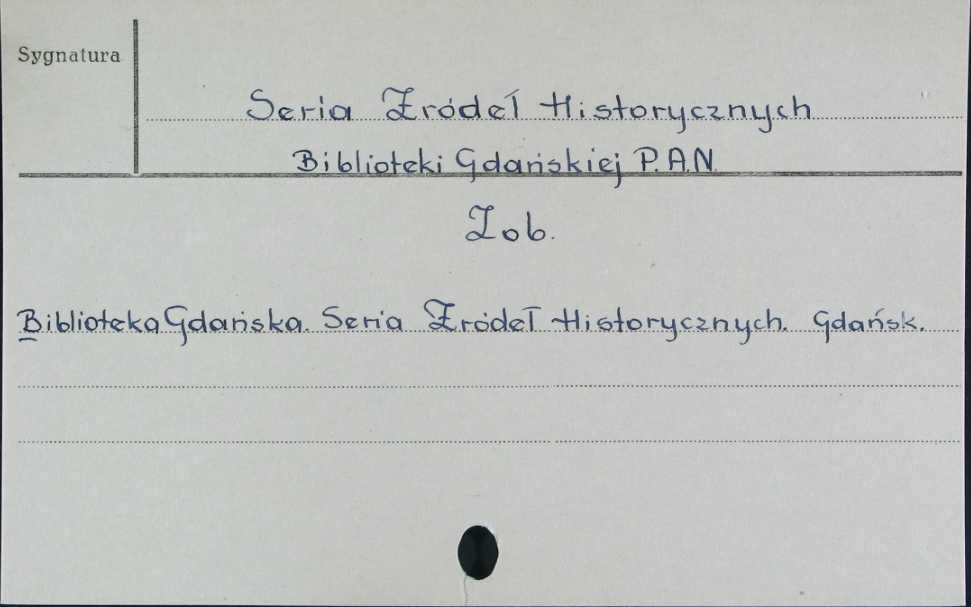 Sygnatura
Seria Źródeł Historycznych
Biblioteki Gdańskiej P.A.N.
Zob.
Biblioteka Gdańska. Seria Źródeł Historycznych. Gdańsk.